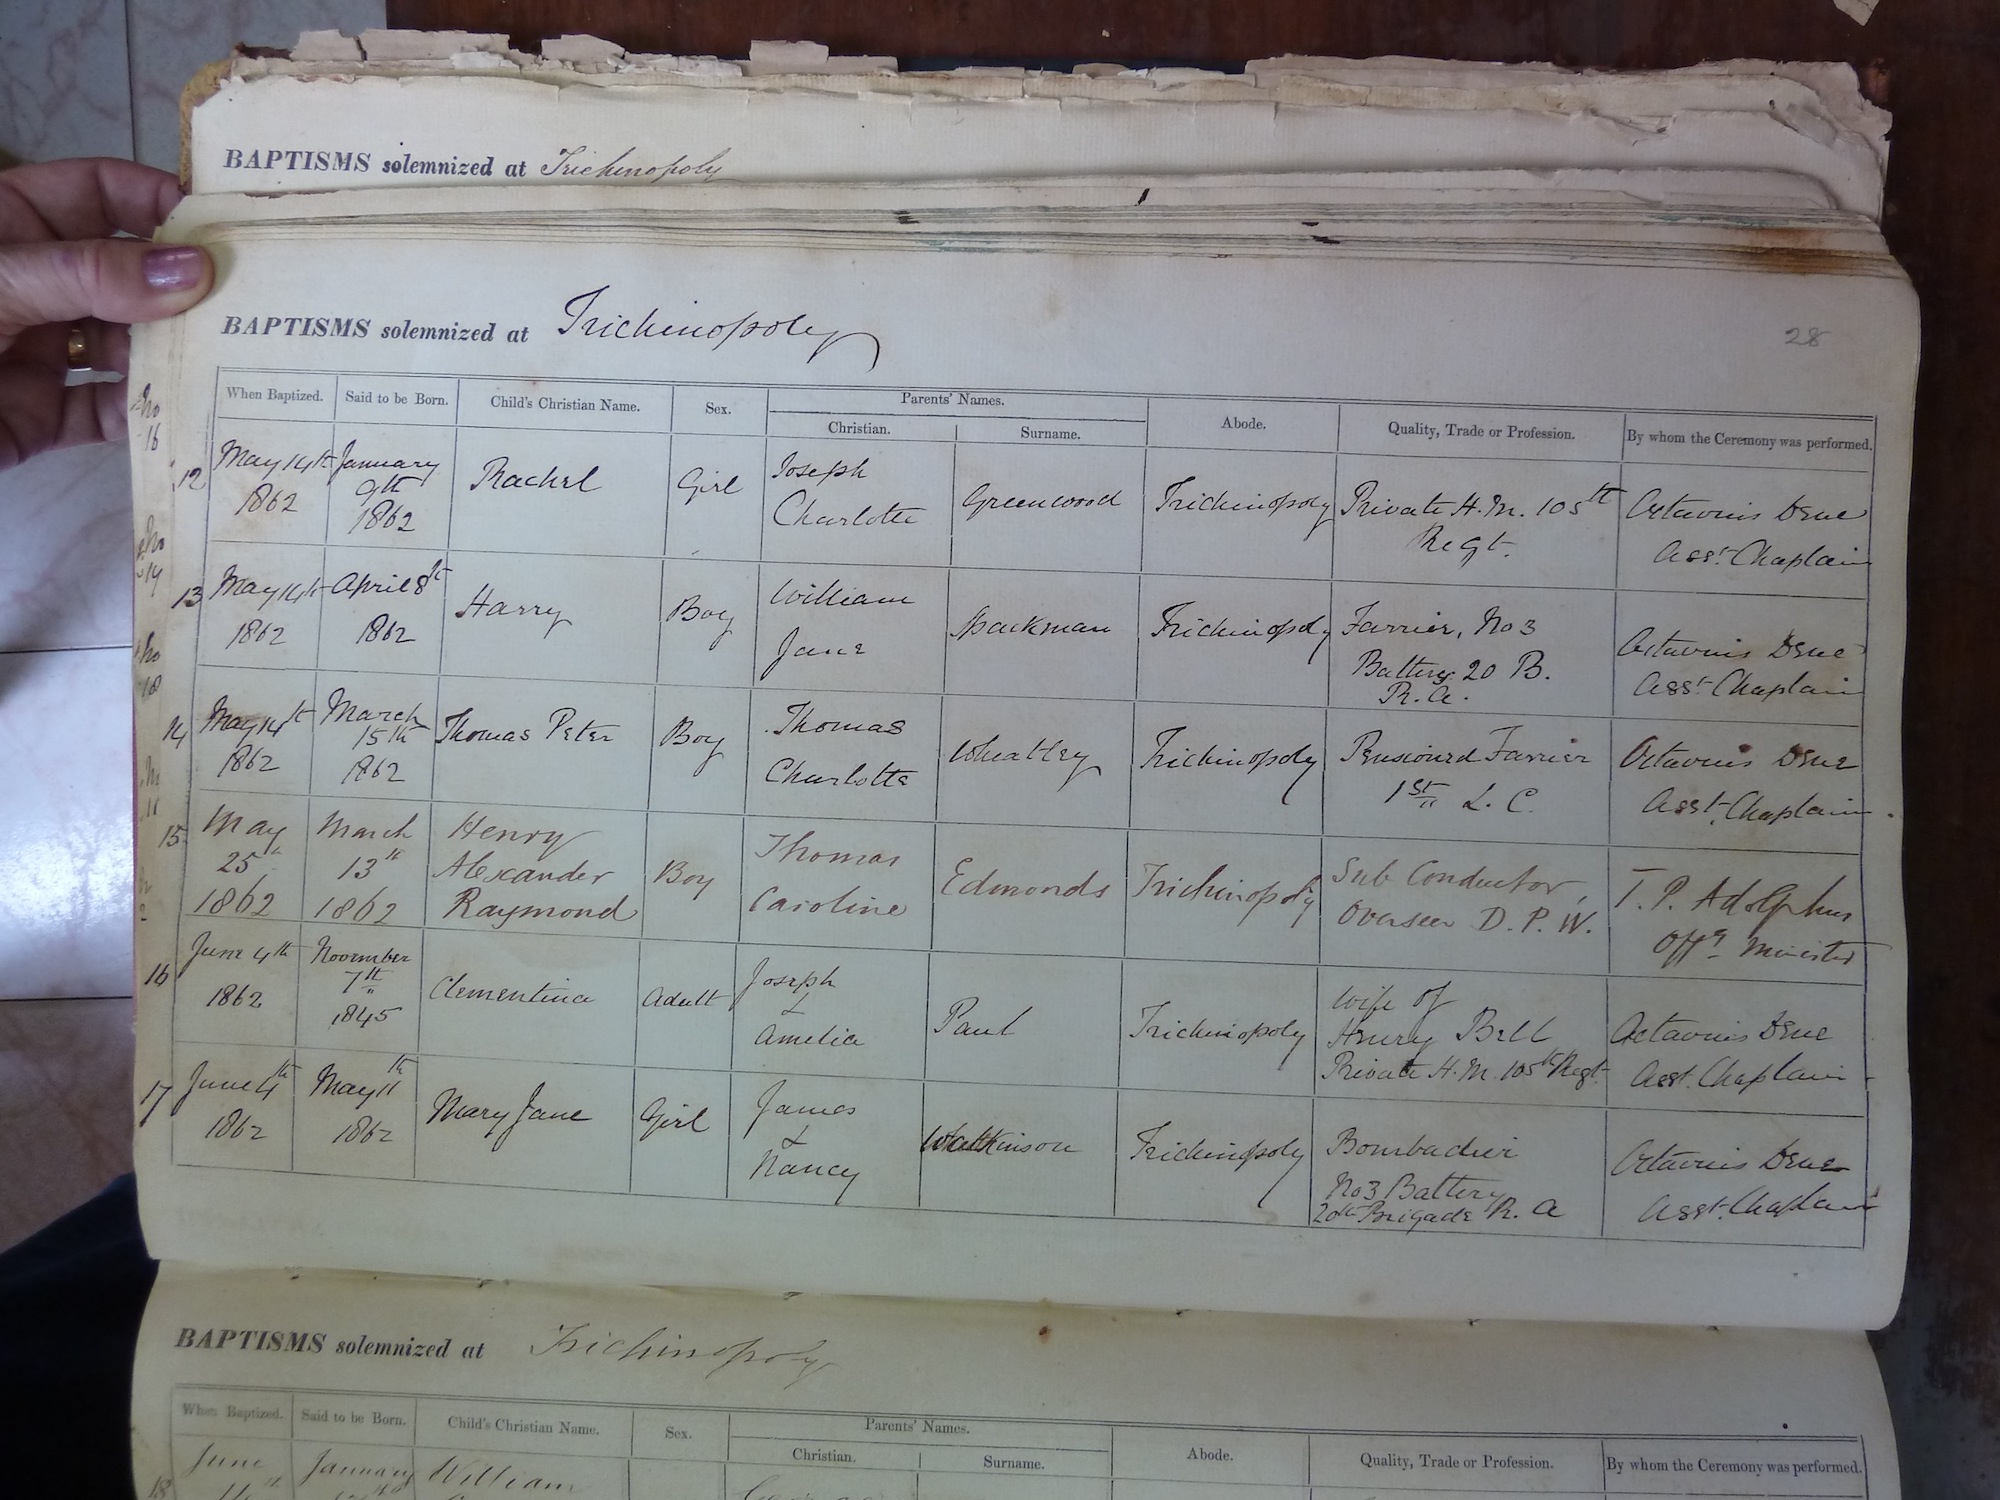 BAPTISMS solemnized at Trichinopoly
BAPTISMS solemnized at Trichinopoly
28
When Baptized. Said to be Born. Child's Christian Name. Sex. Parents' Names. Abode. Quality, Trade or Profession. By whom the Ceremony was performed.
Christian. Surname.
12 May 14th 1862 January 9th 1862 Rachel Girl Joseph Charlotte Greenwood Trichinopoly Private H. M. 105th Regt. Octavius Dene Asst. Chaplain
13 May 14th 1862 April 8th 1862 Harry Boy William Jane Spackman Trichinopoly Farrier, No 3 Battery 20 B. R. A. Octavius Dene Asst. Chaplain
14 May 14th 1862 March 15th 1862 Thomas Peter Boy Thomas Charlotte Wheatley Trichinopoly Pensioned Farrier 1st L. C. Octavius Dene Asst. Chaplain
15 May 25th 1862 March 13th 1862 Henry Alexander Raymond Boy Thomas Caroline Edmonds Trichinopoly Sub Conductor, Overseer D. P. W. T. P. Adolphus Offg. Minister
16 June 4th 1862 November 7th 1845 Clementina Adult Joseph & Amelia Paul Trichinopoly Wife of Henry Bell Private H. M. 105th Regt. Octavius Dene Asst. Chaplain
17 June 4th 1862 May 11th 1862 Mary Jane Girl James & Nancy Trichinopoly Bombadier No 3 Battery 20th Brigade R. A Octavius Dene Asst. Chaplain
BAPTISMS solemnized at Trichinopoly
When Baptized. Said to be Born. Child's Christian Name. Sex. Parents' Names. Abode. Quality, Trade or Profession. By whom the Ceremony was performed.
Christian. Surname.
18 June January William